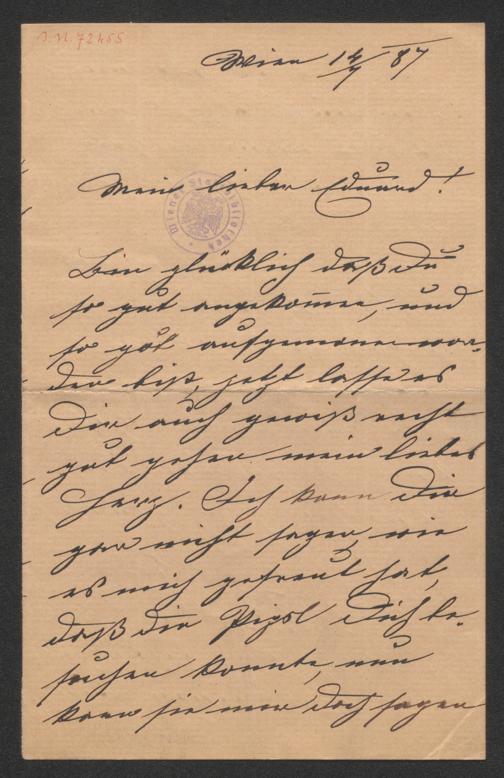 J.N. 72455
Wien 14/7 87
Mein lieber Eduard!
Wiener Stadtbibliothek
Bin glücklich daß Du
so gut angekom̄en, und
so gut aufgenomen wor-
den bist, jetzt lasse es
Dir auch gewiß recht
gut gehen mein liebes
Herz. Ich kann Dir
gar nicht sagen, wie
es mich gefreut hat,
daß die Pigsl Dich be-
suchen konnte, nun
kann sie mir doch sagen